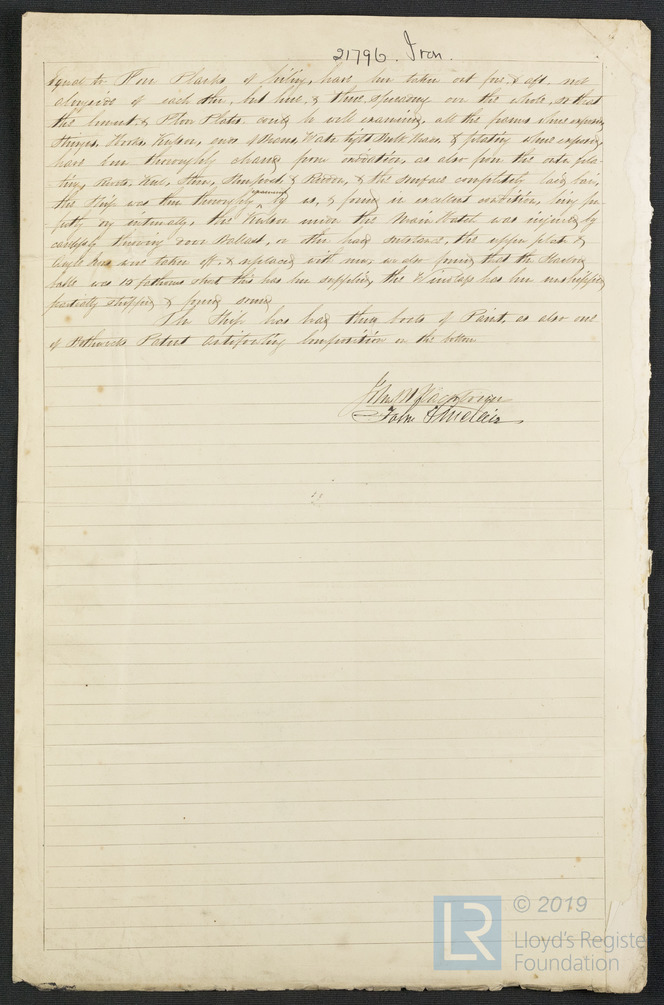 21796. Iron.
equal to Four Planks of Ceiling, have been taken out fore & aft. not
alongside of each other, but here, & there, spreading over the whole, so that
the Cement, & Floor Plates could be well examined, all the frames where exposed,
Stringers, Hooks, Keelson, ends of Beams, Water tight Bulk Heads & plating where exposed,
have been thoroughly cleaned from oxidation, as also from the outer pla-
-ting, Rivets, Keel, Stem, Sternpost & Rudder, & the surface completely laid bare,
the Ship was then thoroughly examined by us, & found in excellent condition, being per-
fectly dry internally, the Keelson under the Main Hatch was injured by
carelessly throwing over Ballast, or other hard substance, the upper plate &
Angle Iron was taken off, & replaced with new, we also found that the
was 10 fathoms short this has been supplied, the Windlass has been unshipped
partially stripped & found sound
The Ship has had three coats of Paint, as also one
of Patent Antifouling Composition on the bottom
John
John Sinclair
LR
© 2019
Lloyd's Registe
Foundation